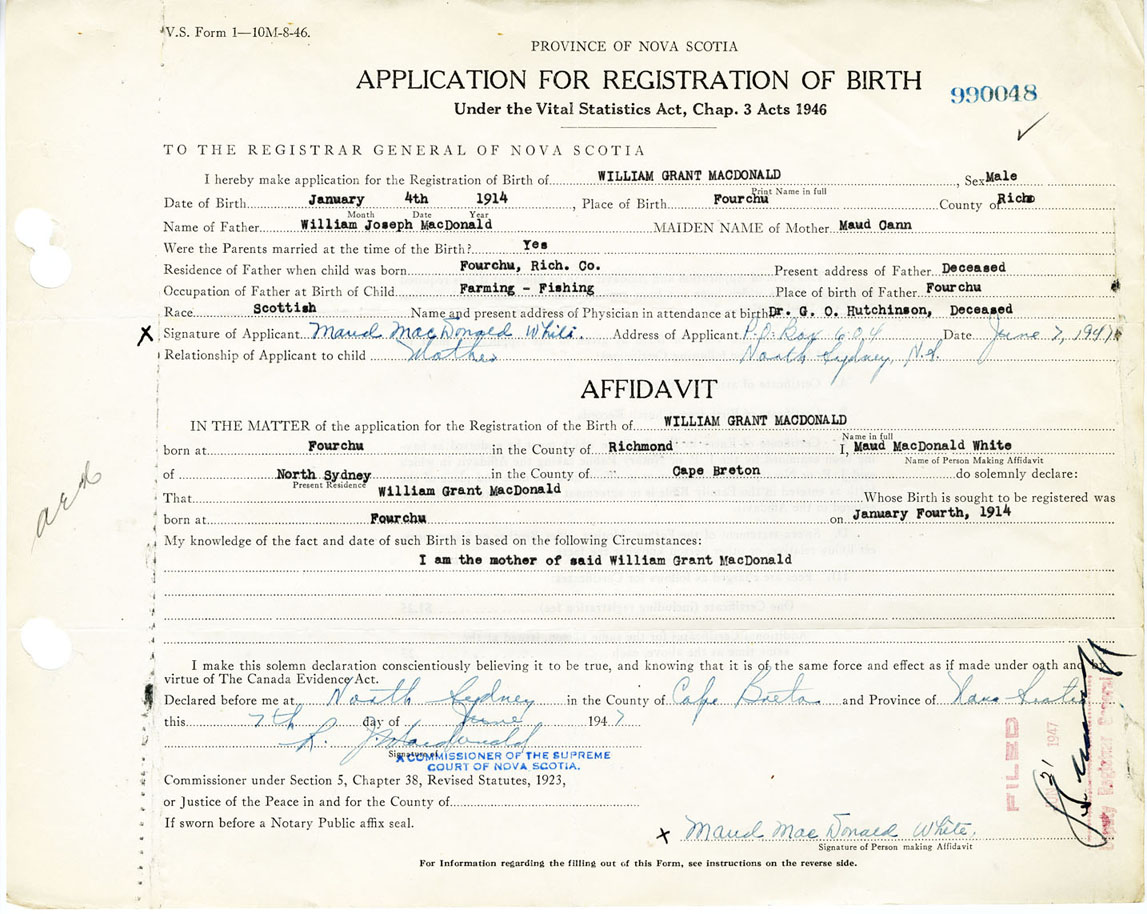 V.S. Form 1—10M-8-46.
PROVINCE OF NOVA SCOTIA
APPLICATION FOR REGISTRATION OF BIRTH
990048
Under the Vital Statistics Act, Chap. 3 Acts 1946
TO THE REGISTRAR GENERAL OF NOVA SCOTIA
I hereby make application for the Registration of Birth of WILLIAM GRANT MACDONALD, Sex Male
Print Name in full
Date of Birth January 4th 1914, Place of Birth Fourchu County of Rich
Month Date Year
Name of Father William Joseph MacDonald MAIDEN NAME of Mother Maud Cann
Were the Parents married at the time of the Birth? Yes
Residence of Father when child was born Fourchu, Rich. Co. Present address of Father Deceased
Occupation of Father at Birth of Child Farming - Fishing Place of birth of Father Fourchu
Race Scottish Name and present address of Physician in attendance at birth Dr. G. O. Hutchinson, Deceased
X Signature of Applicant Maud MacDonald White. Address of Applicant P.O. Box 604 Date June 7, 1947
Relationship of Applicant to child Mother North Sydney, N.S.
AFFIDAVIT
IN THE MATTER of the application for the Registration of the Birth of WILLIAM GRANT MACDONALD
Name in full
born at Fourchu in the County of Richmond I, Maud MacDonald White
Name of Person Making Affidavit
of North Sydney in the County of Cape Breton do solemnly declare:
Present Residence
That William Grant MacDonald Whose Birth is sought to be registered was
born at Fourchu on January Fourth, 1914
My knowledge of the fact and date of such Birth is based on the following Circumstances:
I am the mother of said William Grant MacDonald
I make this solemn declaration conscientiously believing it to be true, and knowing that it is of the same force and effect as if made under oath and by
virtue of The Canada Evidence Act.
Declared before me at North Sydney in the County of Cape Breton and Province of Nova Scotia
this 7th day of June 1947
Signature of
A COMMISSIONER OF THE SUPREME
COURT OF NOVA SCOTIA.
Commissioner under Section 5, Chapter 38, Revised Statutes, 1923,
or Justice of the Peace in and for the County of
If sworn before a Notary Public affix seal.
FILED
21 1947
Deputy Registrar General
X Maud MacDonald White.
Signature of Person making Affidavit
For Information regarding the filling out of this Form, see instructions on the reverse side.